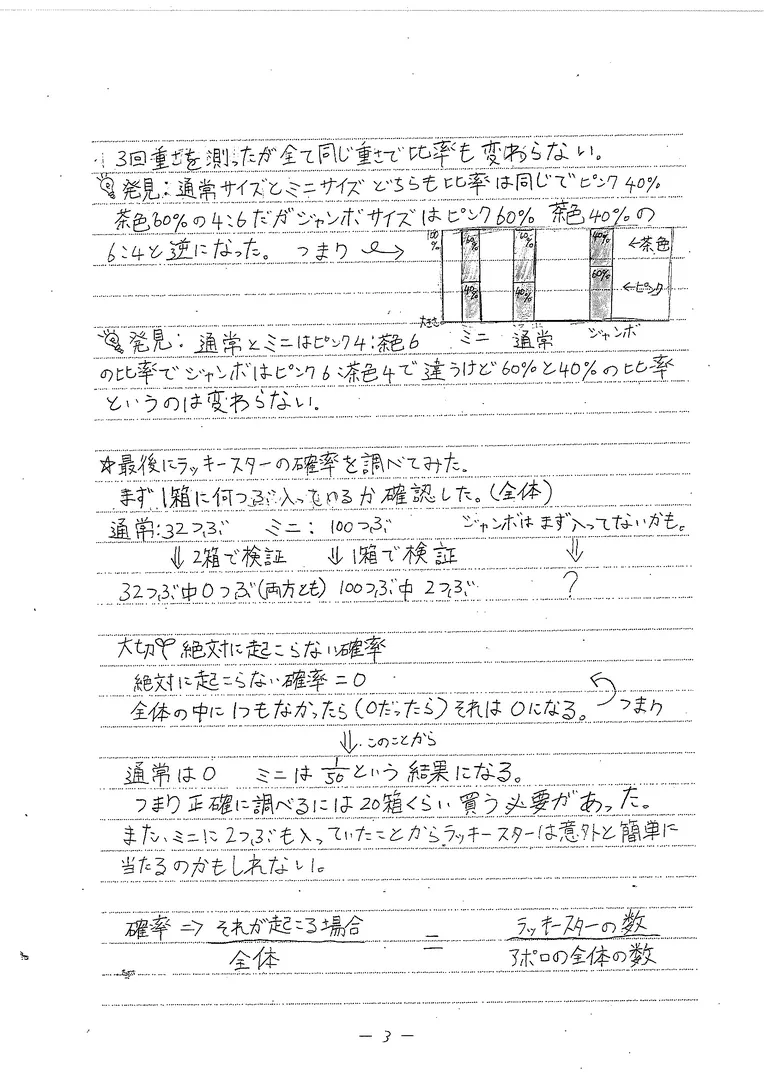 3回重さを測ったが全て同じ重さで比率も変わらない。
発見：通常サイズとミニサイズどちらも比率は同じでピンク40%
茶色60%の4：6だがジャンボサイズはピンク60% 茶色40%の
6：4と逆になった。 つまり
100%
60% 60% 40% ←茶色
40% 40% 60% ←ピンク
大きさ ミニ 通常 ジャンボ
発見： 通常とミニはピンク4：茶色6
の比率でジャンボはピンク6：茶色4で違うけど60%と40%の比率
というのは変わらない。
☆最後にラッキースターの確率を調べてみた。
まず1箱に何つぶ入っているか確認した。(全体)
通常：32つぶ ミニ：100つぶ ジャンボはまず入ってないかも。
⇓2箱で検証 ⇓1箱で検証 ⇓
32つぶ中0つぶ(両方とも) 100つぶ中2つぶ ?
大切 絶対に起こらない確率
絶対に起こらない確率=0
全体の中に1つもなかったら(0だったら)それは0になる。 つまり
⇓このことから
通常は0 ミニは1/50という結果になる。
つまり正確に調べるには20箱くらい買う必要があった。
また、ミニに2つぶも入っていたことからラッキースターは意外と簡単に
当たるのかもしれない。
確率⇒ それが起こる場合 = ラッキースターの数
全体 アポロの全体の数
－3－